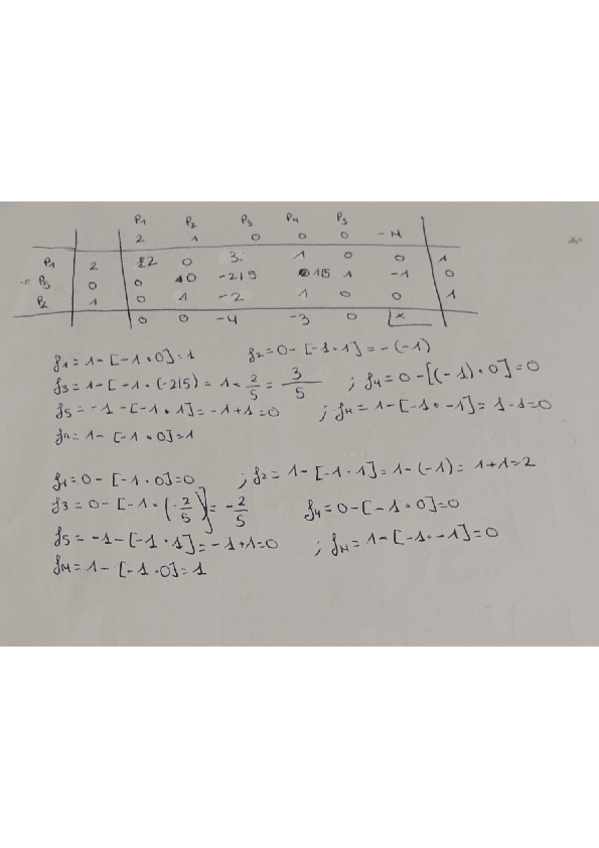 P1 P2 P3 P4 P5
2 1 0 0 0 -M
P1 2 0 3 1 0 0 1
P5 0 0 -2/5 1/5 1 -1 0
P2 1 0 1 -2 1 0 0 1
0 0 -4 -3 0 x
f1 = 1 - [-1 · 0] = 1 f2 = 0 - [-1 · 1] = -(-1)
f3 = 1 - [-1 · (-2/5) = 1 - 2/5 = 3/5 ; f4 = 0 - [(-1) · 0] = 0
f5 = -1 - [-1 · 1] = -1 + 1 = 0 ; fM = 1 - [-1 · -1] = 1 - 1 = 0
= 1 - [-1 · 0] = 1
f1 = 0 - [-1 · 0] = 0 ; f2 = 1 - [-1 · 1] = 1 - (-1) = 1 + 1 = 2
f3 = 0 - [-1 · (-2/5)] = -2/5 f4 = 0 - [-1 · 0] = 0
f5 = -1 - [-1 · 1] = -1 + 1 = 0 ; fM = 1 - [-1 · -1] = 0
fM = 1 - [-1 · 0] = 1